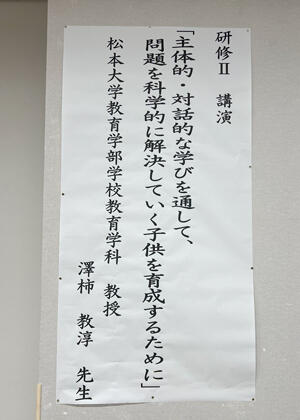 研修Ⅱ 講演
「主体的・対話的な学びを通して、
問題を科学的に解決していく子供を育成するために」
松本大学教育学部学校教育学科 教授
澤柿 教淳 先生